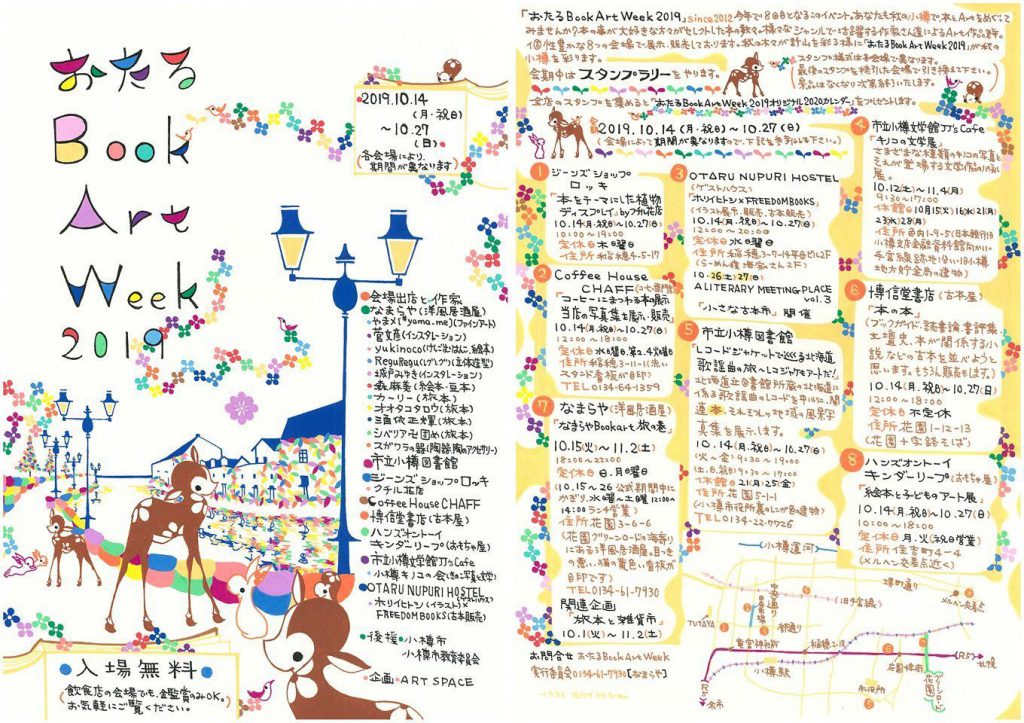 おたる
Book
Art
Week
2019
2019.10.14
(月・祝日)
～10.27
(日)
各会場により、
期間が異なります
会場出店と作家
なまらや(洋風居酒屋)
やまメ(*yama.me)(ファインアート)
菅文彦(インスタレーション)
yukinoco(けしごむはんこ、絵本)
ReguRegu(グレグレ)(立体造型)
城戸みゆき(インスタレーション)
森麻美(絵本・豆本)
カーリー(旅本)
オオタコタロウ(旅本)
三角依正輝(旅本)
シベリア卍固め(旅本)
スガワラの器(陶器、陶のアクセサリー)
市立小樽図書館
ジーンズショップロッキ
クチル花店
Coffee House CHAFF
博信堂書店(古本屋)
ハンズオントーイ
キンダーリープ(おもちゃ屋)
市立小樽文学館JJ'sCafe
小樽キノコの会(きのこ写真と文学)
OTARU NUPURI HOSTEL
(ゲストハウス)
ホリイヒトシ(イラスト)×
FREEDOM BOOKS(古本販売)
後援・小樽市
小樽市教育委員会
企画・ART SPACE
入場無料
飲食店の会場でも、ご鑑賞のみOK。
お気軽にご覧ください。
「おたるBookArtWeek2019」since2012今年で8回目となるこのイベント。あなたも秋の小樽で、本とArtをめぐって
みませんか?本の事が大好きな方々がセレクトした本の数々。様々なジャンルで活躍する作家さん達によるArt作品群。
個性豊かな8つの会場で展示・販売しております。秋の木々が野山を彩る様に「おたるBookArtWeek2019」が秋の
小樽を彩ります。
会期中はスタンプラリーをやります。
スタンプ様式は各会場で異なります。
最後のスタンプを捺印した会場で引き換え下さい。
景品はなくなり次第終了いたします。
全店のスタンプを集めると「おたるBookArtWeek2019オリジナル2020カレンダー」をプレゼントします。
2019.10.14(月・祝日)～10.27(日)
(会場によって期間が異なりますので、下記を参考にして下さい。)
1 ジーンズショップ
ロッキ
「本をテーマにした植物
ディスプレイ」byクチル花店
10.14(月、祝日)～10.27(日)
10:00～19:00
定休日 木曜日
住所 稲穂4-5-17
2 Coffee House
CHAFF(コーヒー専門店)
「コーヒーにまつわる本の展示
当店の写真集も展示・販売」
10.14(月、祝日)～10.27(日)
12:00～18:00
定休日 水曜日、第2.4火曜日
住所 稲穂3-11-1(赤い
スタンド看板が目印)
TEL0134-64-1359
7 なまらや(洋風居酒屋)
「なまらやBookart 旅の巻」
10.15(火)～11.2(土)
18:00～22:00
定休日 日.月曜日
(10.15～26 公式期間中に
かぎり、水曜～土曜 12:00～
14:00ランチ営業)
住所 花園3-6-6
(花園グリーンロードの海寄り
にある洋風居酒屋。目つき
の悪い猫の黄色い看板が
目印です)
TEL0134-61-7930
関連企画
「旅本と雑貨市」
10.1(火)～11.2(土)
お問合せ おたるBookArtWeek
実行委員会0134-61-7930[なまらや]
イラスト ホリイヒトシ
3 OTARU NUPURI HOSTEL
(ゲストハウス)
「ホリイヒトシ×FREEDOM BOOKS」
(イラスト展示、販売、古本販売)
10.14(月、祝日)～10.27(日)
12:00～20:00
定休日 水曜日
住所 稲穂3-7-14平和ビル2F
10.26(土)27(日)
A LITERARY MEETING PLACE
vol.3
「小さな古本市」開催
5 市立小樽図書館
「レコードジャケットで巡る北海道
歌謡曲の旅～レコジャケもアートだ！」
北海道立図書館所蔵の北海道に
係る歌謡曲のレコードを中心に、関
連本、それぞれの地域の風景写
真集を展示します。
10.14(月、祝日)～10.27(日)
火～金)9:30～19:00
(土、日、祝)9:30～17:00
休館日 21(月)25(金)
住所 花園5-1-1
(小樽市役所裏のレンガ色の建物)
TEL0134-22-7726
4 市立小樽文学館JJ'sCafe
「キノコの文学展」
さまざまな種類のキノコの写真と
それが登場する文学作品の小さな
展。
10.12(土)～11.4(月)
9:30～17:00
休館日 10月15(火)16(水)21(月)
23(水)28(月)
住所 色内1-9-5(日本銀行旧
小樽支店金融資料館向かい・
手宮線跡地沿い・旧小樽
地方貯金局の建物)
6 博信堂書店(古本屋)
「本の本」
(ブックガイド、読書論、書評集、
文壇史、本が関係する小
説などの古本を並べようと
思います。もちろん販売もします。)
10.14(月、祝日)～10.27(日)
12:00～18:00
定休日 不定休
住所 花園1-12-13
(花園十字路そば)
8 ハンズオントーイ
キンダーリープ(おもちゃ屋)
「絵本と子どものアート展」
10.14(月、祝日)～10.27(日)
10:00～18:00
定休日 月.火(祝日営業)
住所 住吉町4-4
(メルヘン交差点近く)
小樽運河
堺町通り
メルヘン交差点
中央通り
(旧手宮線)
TUTAYA
都通り
竜宮神社
小樽駅
市役所
花園
JR
札幌
余市